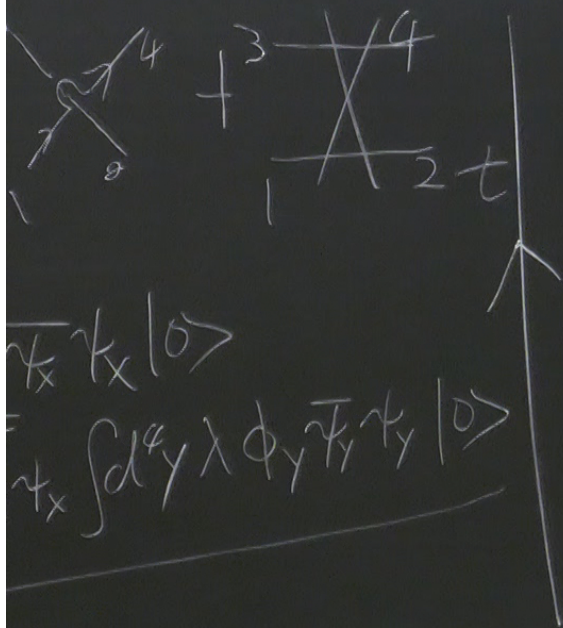 4 + 3 4
1 2 1 2 t
\overline{ψ}_x ψ_x |0>
ψ_x ∫d⁴y λ φ_y \overline{ψ}_y ψ_y |0>